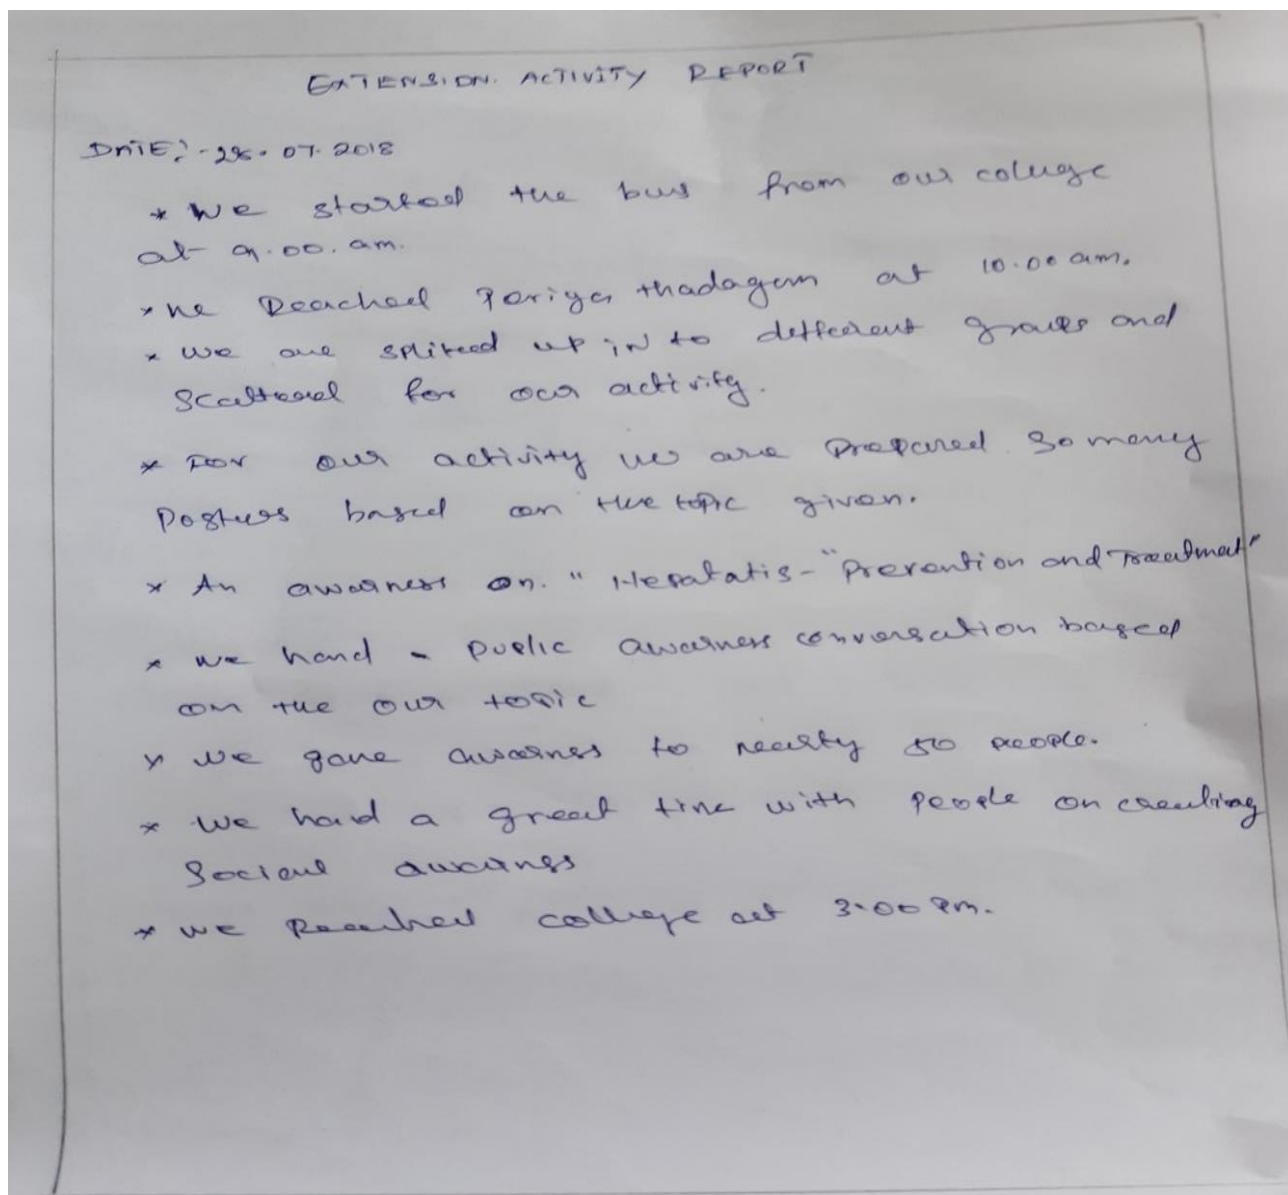 EXTENSION. ACTIVITY REPORT
DATE:- 28. 07. 2018
* We started the bus from our college
at 9.00. am.
* we Reached Periya thadagam at 10.00 am.
* We are splited up in to different groups and
Scattered for our activity.
* For our activity we are Prepared So many
Posters based on the topic given.
* An awarness on. "Hepatatis-"Prevention and Treatment"
* We hand - public awarness conversation based
on the our topic
* We gave awarness to nearly 50 people.
* We had a great time with People on creating
Social awarness
* We Reached college at 3.00 Pm.